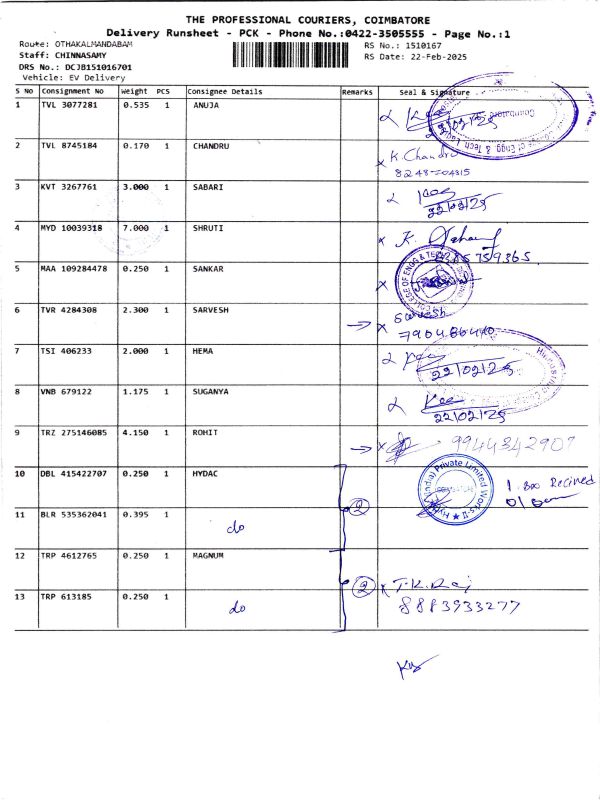 THE PROFESSIONAL COURIERS, COIMBATORE
Delivery Runsheet - PCK - Phone No.:0422-3505555 - Page No.:1
Route: OTHAKALMANDABAM
RS No.: 1510167
Staff: CHINNASAMY
RS Date: 22-Feb-2025
DRS No.: DCJB151016701
Vehicle: EV Delivery
S NO Consignment No Weight PCS Consignee Details Remarks Seal & Signature
1 TVL 3077281 0.535 1 ANUJA
Coimbatore
2 TVL 8745184 0.170 1 CHANDRU K. Chandru
3 KVT 3267761 3.000 1 SABARI
22/02/25
4 MYD 10039318 7.000 1 SHRUTI K.
5 MAA 109284478 0.250 1 SANKAR
COLLEGE OF ENGG & TECH
6 TVR 4284308 2.300 1 SARVESH Sarvesh
7 TSI 406233 2.000 1 HEMA
22/02/25
8 VNB 679122 1.175 1 SUGANYA
22/02/25
9 TRZ 275146085 4.150 1 ROHIT 9944342907
10 DBL 415422707 0.250 1 HYDAC
(India) Private Limited Works-II ★ Hyd
1 Box Recived
2
11 BLR 535362041 0.395 1 do
12 TRP 4612765 0.250 1 MAGNUM
2 T.K. Raj
13 TRP 613185 0.250 1 do 8883933277